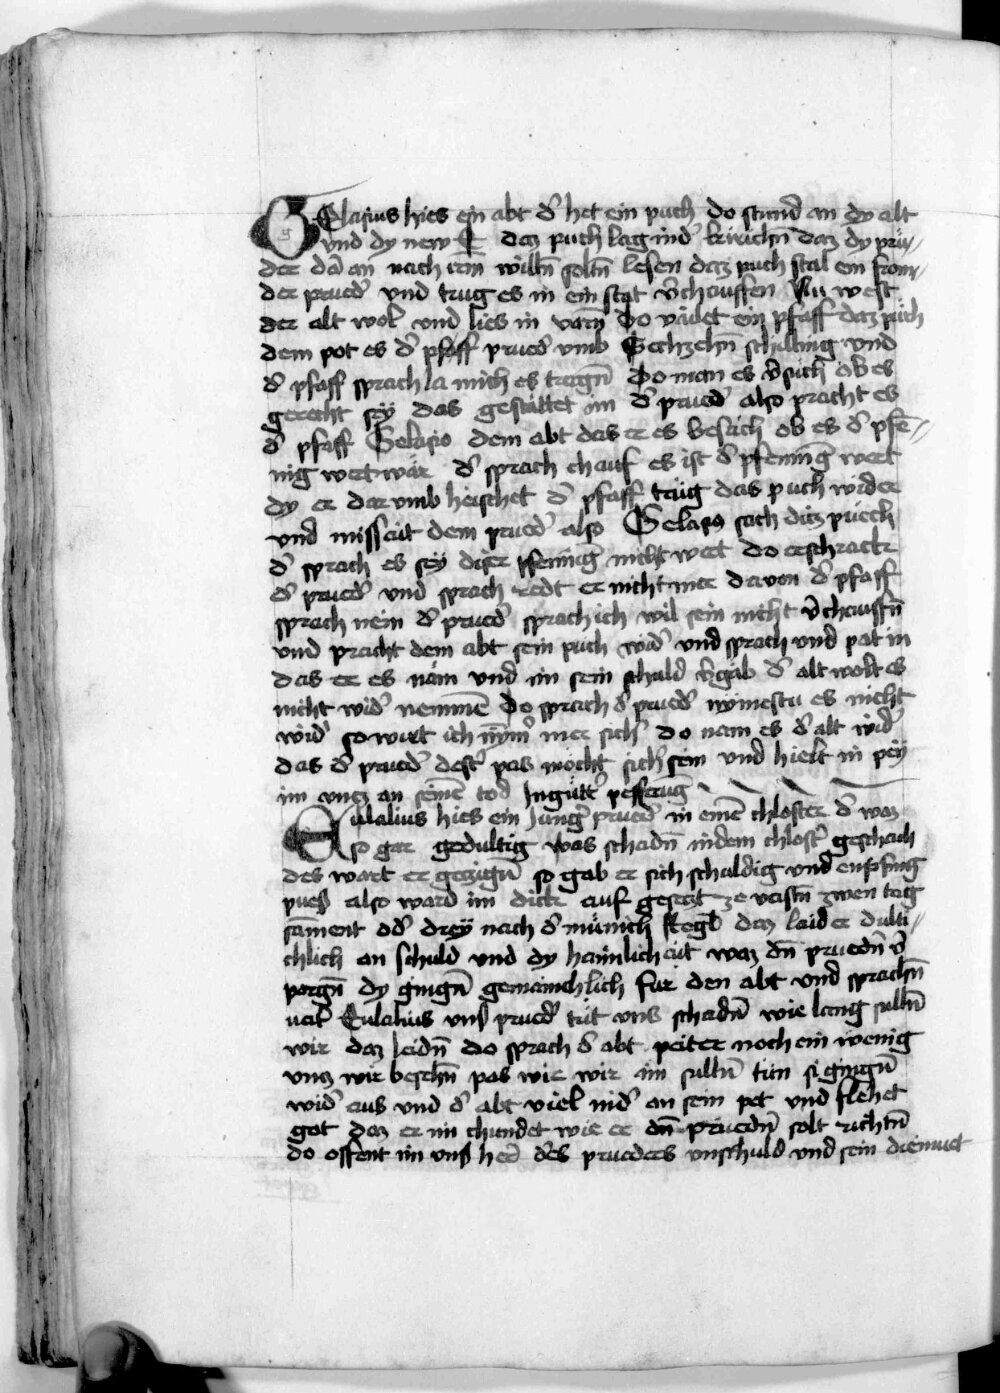 GElasius hies ein abt d̄ het ein puch do stund an dy alt
vnd dy new E daz puch lag in d̄ kirichn̄ daz dy prü-
der dar an nach irm̄ willn̄ soln̄ lesen daz puch stal ein from-
der prued̄ vnd trug es in ein stat v̄chauffen Nu west
der alt wol vnd lies in varn̄ Do vādet ein pfaff daz püch
dem pot es d̄ pfaff prued̄ vmb Sechzehn̄ schilling vnd
d̄ pfaff sprach la mich es tragn̄ Do man es v̄such ob es
gerecht sey das gestattet im d̄ prued̄ also pracht es
d̄ pfaff Gelasio dem abt das er es besäch ob es d̄ pfē-
nig wert wär d̄ sprach chauf es ist d̄ pfenning wert
dy er dar vmb heischet d̄ pfaff trüg das puch wider
vnd missait dem prued̄ also Gelasis sach ditz püech
d̄ sprach es sey diser pfening nicht wert do erschrackt
d̄ prued̄ vnd sprach redt er nicht mer davon d̄ pfaff
sprach nein d̄ prued̄ sprach ich wil sein nicht v̄chauffn̄
vnd pracht dem abt sein püch wid̄ vnd sprach vnd pat in
das er es näm vnd im sein schuld v̄gäb d̄ alt wolt es
nicht wid̄ nemmē Do sprach d̄ prued̄ nymestu es nicht
wid̄ so wirt ich nym̄ mer sich̄ do nam es d̄ alt wid̄
das d̄ prued̄ dest̄ pas möcht sich̄ sein vnd hielt in pey
im vncz an seinē tod In gütt̄ pesseruḡ
EUlalius hies ein Junḡ prued̄ in einē chloster d̄ waz
so gar gedultig was schadn̄ in dem chlost̄ geschach
des wart er geczign̄ so gab er sich schuldig vnd enpfing
pues also ward im dick auf gesetzt ze vastn̄ zwen tag
sament od̄ drey nach d̄ münich Regl̄ daz laid er dulti-
chlich an schuld vnd dy haimlichait waz dn̄ pruedn̄ v̄
porgn̄ dy gingn̄ gemainchlich für den abt vnd sprachn̄
vat̄ Eulalius vns̄ prued̄ tüt vns schadn̄ wie lang sulln̄
wir daz leidn̄ do sprach d̄ abt peiter noch ein wenig
vncz wir besehn̄ pas wie wir im sulln̄ tün si gingn̄
wid̄ aus vnd d̄ abt viel nid̄ an sein pet vnd flehet
got daz er im chundet wie er dn̄ pruedn̄ solt richtn̄
do offent im vns̄ her̄ des prueders vnschuld vnd sein diemuet